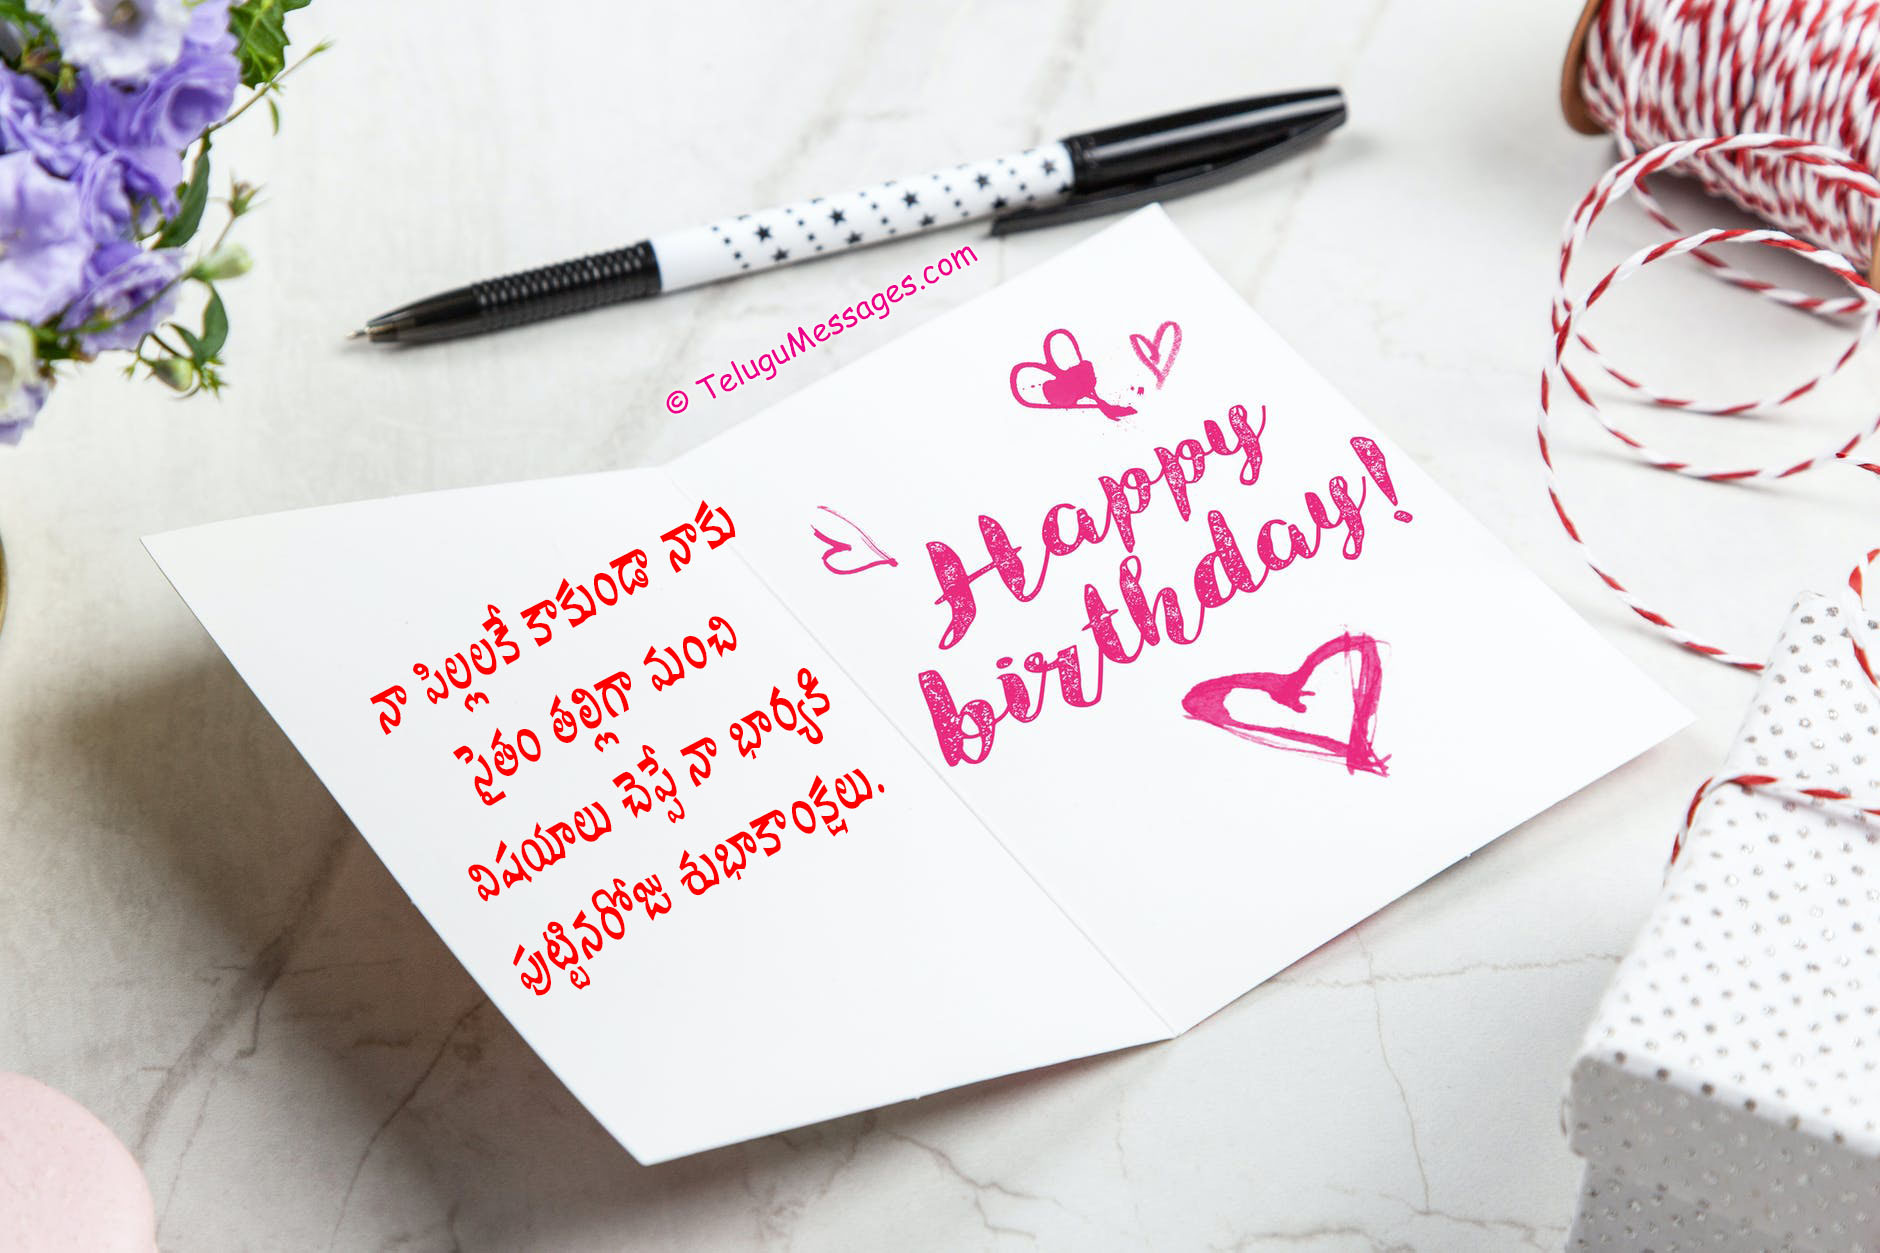 © TeluguMessages.com
నా పిల్లలకే కాకుండా నాకు
సైతం తల్లిగా మంచి
విషయాలు చెప్పే నా భార్యకి
పుట్టినరోజు శుభాకాంక్షలు.
Happy
birthday!